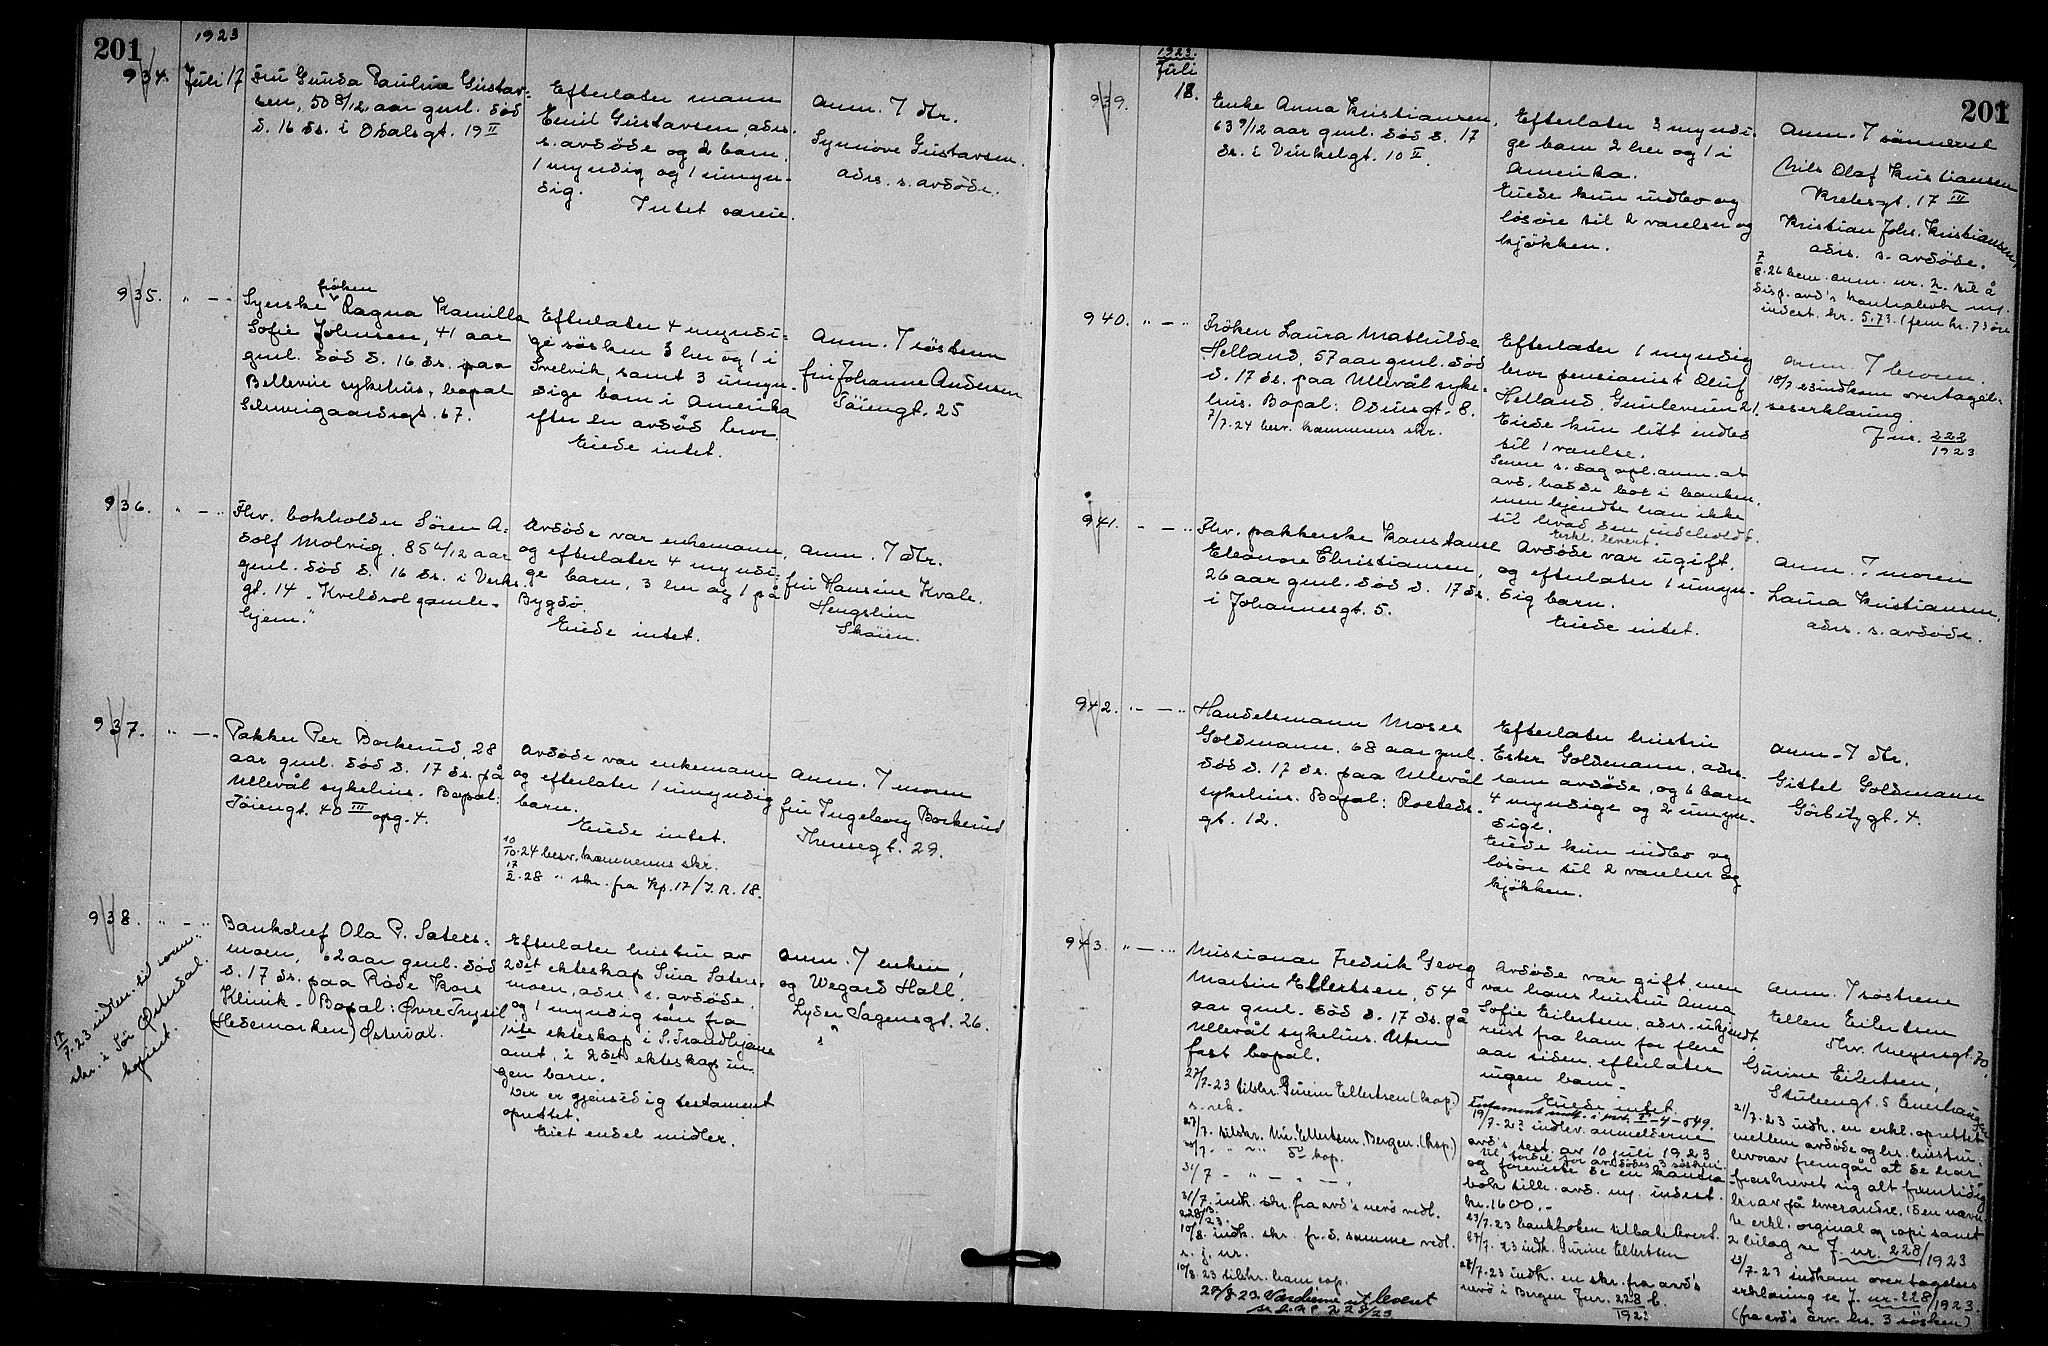 201
1923
934. Juli 17
Fru Gunda Pauline Gustav-
sen, 50 8/12 aar gml. död
d. 16 ds. i Odalsgt. 19 II
Efterlater mann
Emil Gustavsen, adrs.
s. avdöde og 2 barn,
1 myndig og 1 umyn-
dig.
Intet særeie.
Anm. 7 dtr.
Synnöve Gustavsen.
adrs. s. avdöde.
935. " — "
fröken
Syerske Ragna Kamilla
Sofie Johnsen, 41 aar
gml. död d. 16 ds. paa
Bellevue sykehus, bopæl
Schweigaardsgt. 67.
Efterlater 4 myndi-
ge sösken 3 her og 1 i
Svelvik, samt 3 umyn-
dige barn i Amerika
efter en avdöd bror.
Eiede intet.
Anm. 7 söstern
fru Johanne Andersen
Töiengt. 25
936. " — "
Fhv. bokholder Sören A-
dolf Molvig, 85 4/12 aar
gml. död d. 16 ds. i Verks.
gt. 14. "Kveldsol gamle-
hjem."
Avdöde var enkemann,
og efterlater 4 myndi-
ge barn, 3 her og 1 på
Bygdö.
Eiede intet.
Anm. 7 dtr.
fru Hansine Kvale.
Hengslien
Sköien.
937. " — "
Pakker Per Borkerud, 28
aar gml. död d. 17 ds. på
Ullevål sykehus. Bopæl:
Töiengt. 40 III opg. 4.
Avdöde var enkemann
og efterlater 1 umyndig
barn.
Eiede intet.
10/10.24 besv. kæmnerens skr.
17/2.28 " skr. fra Kp. 17/J.R. 18.
Anm. 7 moren
fru Ingeborg Borkerud
Theresegt. 29.
938. " — "
17/7.23 indlev. til soren-
skr. i Sör Österdal.
kopiert.
Bankchef Ola P. Sæters-
moen, 62 aar gml. död
d. 17 ds. paa Röde Kors
Klinik. Bopæl: Övre Trysil
(Hedemarken) Østerdal.
Efterlater hustru av
2det ekteskap Sina Sæters-
moen, adr. s. avdöde,
og 1 myndig sön fra
1ste ekteskap i S. Trondhjems
amt, i 2det ekteskap in-
gen barn.
Der er gjensidig testament
oprettet.
Eiet endel midler.
Anm. 7 enken,
og Wegard Hall.
Lyder Sagensgt. 26.
201
1923.
Juli
939. 18.
Enke Anna Kristiansen,
63 9/12 aar gml. död d. 17
ds. i Vinkelgt. 10 II.
Efterlater 3 myndi-
ge barn 2 her og 1 i
Amerika.
Eiede kun indbo og
lösöre til 2 værelser og
kjökken.
Anm. 7 sönnerne
Nils Olaf Kristiansen
Krebsgt. 17 III
Kristian Johs. Kristiansen,
adrs. s. avdöde.
7/8.26 bem. anm. nr. 2. til å
disp. avd's kontrabok m/
indest. kr. 5.73. (fem kr. 73 öre
940. " — "
Fröken Laura Mathilde
Helland, 57 aar gml. död
d. 17 ds. paa Ullevål syke-
hus. Bopæl: Odinsgt. 8.
7/7.24 besv. kæmnerens skr.
Efterlater 1 myndig
bror pensionist Oluf
Helland, Gimleveien 21.
Eiede kun litt indbo
til 1 værelse.
Senere s. dag opl. anm. at
avd. hadde bok i banken,
men kjendte han ikke
til hvad den indeholdt.
Erkl. levert.
Anm. 7 broren.
18/7 23 indkom overtagel-
seserklæring
J nr. 222/1923
941. " — "
Fhv. pakkerske Konstanse
Eleonore Christiansen,
26 aar gml. död d. 17 ds.
i Johannesgt. 5.
Avdöde var ugift,
og efterlater 1 umyn-
dig barn.
Eiede intet.
Anm. 7 moren
Laura Kristiansen,
adrs. s. avdöde.
942. " — "
Handelsmann Moses
Goldmann, 68 aar gml.
död d. 17 ds. paa Ullevål
sykehus. Bopæl: Roeteds-
gt. 12.
Efterlater hustru
Ester Goldmann, adrs.
som avdöde, og 6 barn
4 myndige og 2 umyn-
dige.
Eiede kun indbo og
lösöre til 2 værelser og
kjökken.
Anm. 7 dtr.
Gittel Goldmann
Görbitzgt. 4.
943. " — "
Missionær Fredrik Georg
Martin Ellertsen, 54
aar gml. död d. 17 ds. på
Ullevål sykehus. Uten
fast bopæl.
27/7-23 tilskr. Gurine Ellertsen (kop.)
s. rek.
27/7. tilskr. Ellertsen Bergen. (kop.)
31/7 - " — " —
31/7. indk. skr. fra avd's nevö vedl.
228/23.
10/8. indk. skr. fr. d. samme vedl.
s. j. nr.
10/8 23 tilskr. ham cop.
27/8.23 Verdierne utlevert
se J. nr. 228/23
Avdöde var gift, men
var hans hustru Anna
Sofie Eilertsen, adrs. ukjendt,
reist fra ham for flere
aar siden, efterlater
ingen barn.
Eiede intet.
19/7-23 indlev. anmelderne
avd's test. av 10 juli 1923
til fordel for avdödes 3 sösken.
og foreviste de en kontra-
bok tilh. avd. m/ indest.
kr. 1600.-
23/7-23 bankboken tilbakelevert.
27/7. 23 indk. Gurine Ellertsen
28/7-23 indk. en skr. fra avd's
nevö i Bergen Jnr. 228 b./1923
Anm. 7 söstrene
Ellen Eilertsen
Thv. Meyersgt. 70,
Gurine Eilertsen,
Stuteengt. 5 Enerhaugen
21/7-23 indk. en erkl. oprettet
mellem avdöde og hs. hustru,
hvorav fremgår at de har
fraskrevet sig alt fremtidig
krav på hverandre. (Den nævn-
te erkl. orginal og copi samt
2 bilag se J. nr. 228/1923
23/7-23 indkom overtagelses
erklæring se J. nr. 228/1923.
(fra avd's arv. hs. 3 sösken)